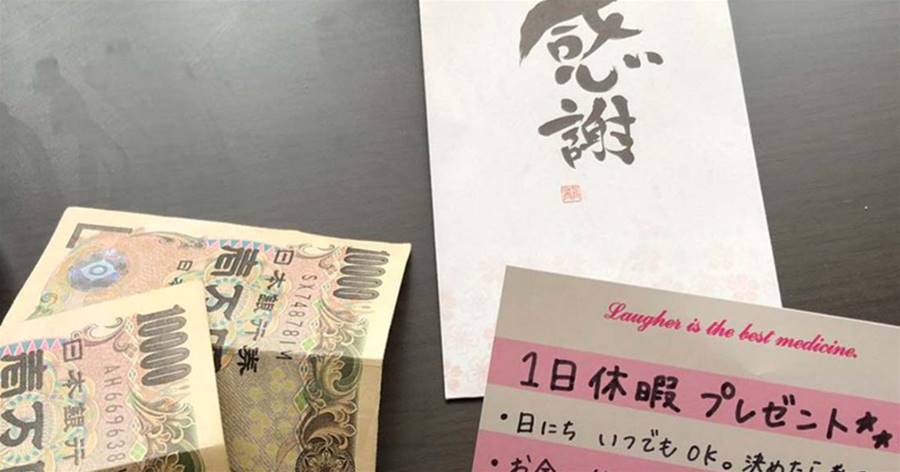 感謝
10000
日本銀行券
壱万円
SX748781M
10000
日本銀行
壱万
AH6669638
Laugher is the best medicine.
1日休暇 プレゼント★★
・日にち いつでもOK。決めたら
・お金